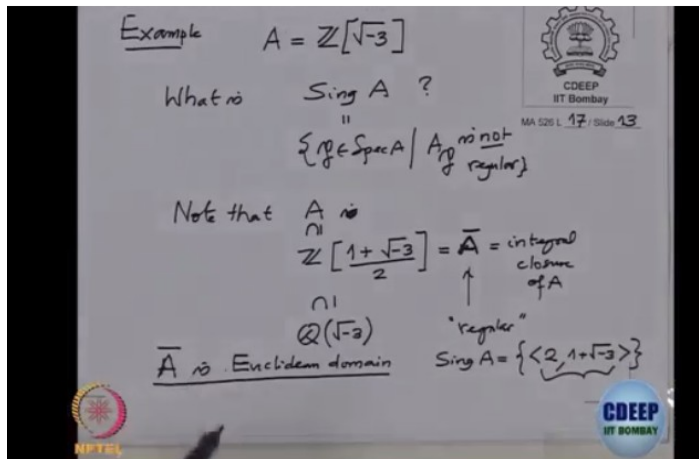 Example A = ℤ[√-3]
CDEEP
IIT Bombay
What is Sing A ?
MA 526 L 17 / Slide 13
=
{𝔭 ∈ Spec A | A_𝔭 is not regular}
Note that A is
∩|
ℤ[(1 + √-3)/2] = Ā = integral closure of A
∩| ↑
ℚ(√-3) "regular"
Ā is Euclidean domain Sing A = {<2, 1+√-3>}
NPTEL
CDEEP
IIT BOMBAY